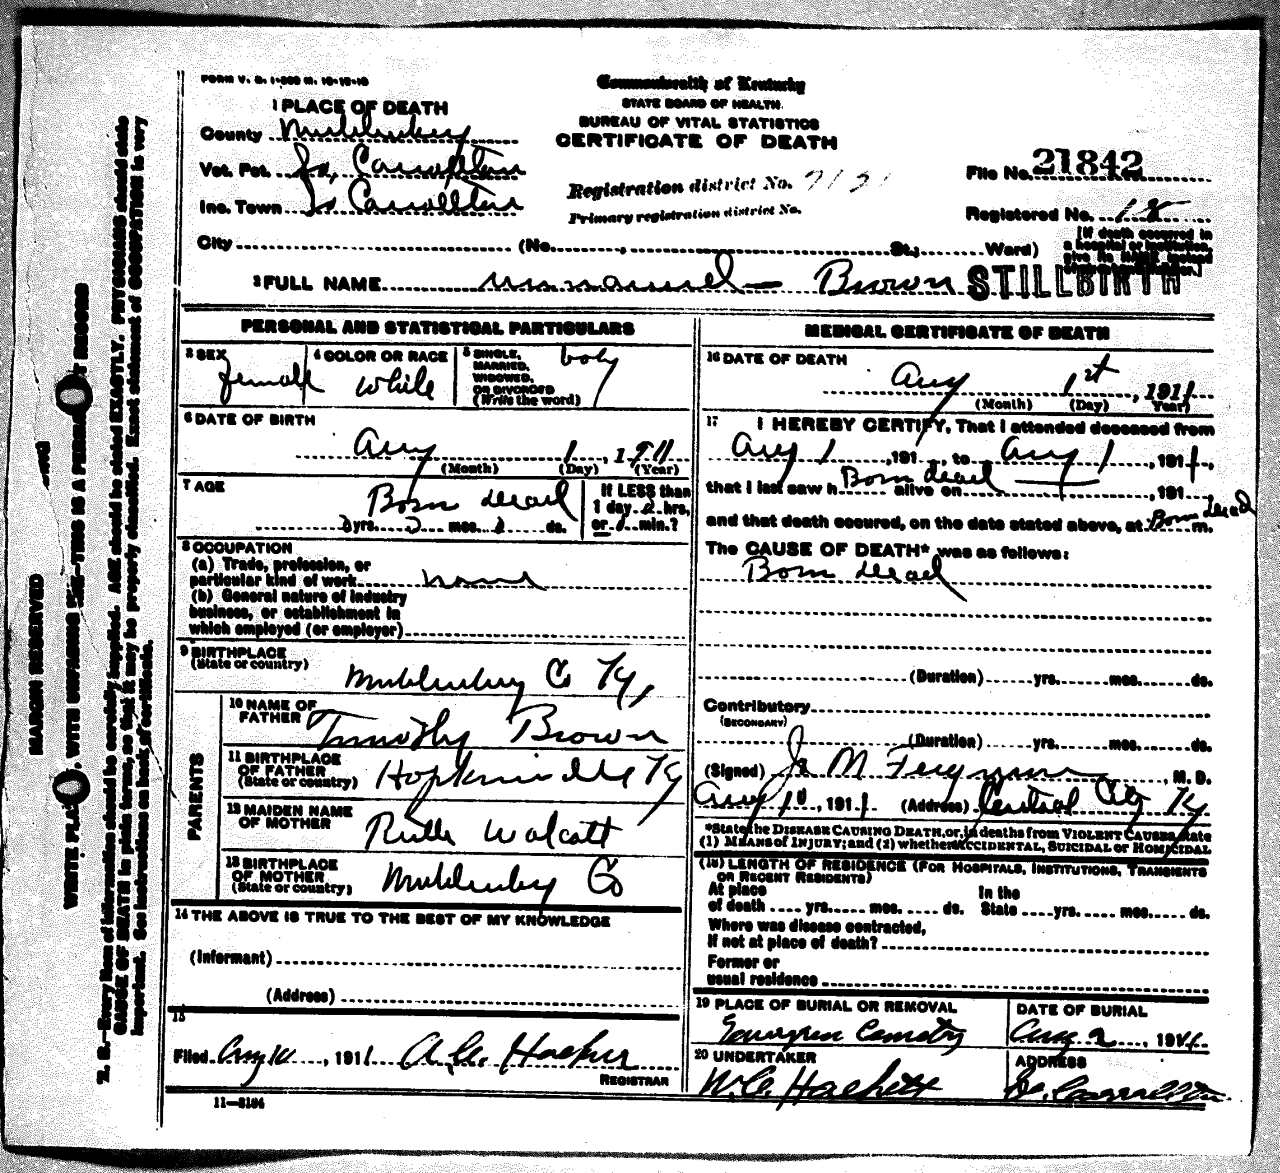 FORM V. S. 1-
Commonwealth of Kentucky
STATE BOARD OF HEALTH.
BUREAU OF VITAL STATISTICS
CERTIFICATE OF DEATH
1 PLACE OF DEATH
County Muhlenberg
Vot. Pct. So, Carrollton
Inc. Town So Carrollton
City (No. , St.; Ward)
Registration district No.
Primary registration district No.
File No. 21842
Registered No. 18
[If death occurred in
a hospital or institution,
give its NAME instead
2 FULL NAME Brown STILLBIRTH
PERSONAL AND STATISTICAL PARTICULARS
3 SEX female
4 COLOR OR RACE White
5 SINGLE, MARRIED, WIDOWED, OR DIVORCED (Write the word)
6 DATE OF BIRTH
Aug 1, 1911
(Month) (Day) (Year)
7 AGE Born dead
yrs. mos. ds.
If LESS than
1 day hrs.
or min.?
8 OCCUPATION
(a) Trade, profession, or
particular kind of work none
(b) General nature of industry
business, or establishment in
which employed (or employer)
9 BIRTHPLACE
(State or country) Muhlenberg Co Ky,
PARENTS
10 NAME OF FATHER Timothy Brown
11 BIRTHPLACE OF FATHER (State or country) Hopkinsville Ky
12 MAIDEN NAME OF MOTHER Walcott
13 BIRTHPLACE OF MOTHER (State or country) Muhlenberg Co
14 THE ABOVE IS TRUE TO THE BEST OF MY KNOWLEDGE
(Informant)
(Address)
15
Filed Aug 10, 1911
REGISTRAR
11-
MEDICAL CERTIFICATE OF DEATH
16 DATE OF DEATH
Aug 1st, 1911
(Month) (Day) Year)
17 I HEREBY CERTIFY, That I attended deceased from
Aug 1, 191 , to Aug 1, 1911,
that I last saw h Born dead alive on , 191 ,
and that death occured, on the date stated above, at Born dead m.
The CAUSE OF DEATH* was as follows:
Born dead
(Duration) yrs. mos. ds.
Contributory
(SECONDARY)
(Duration) yrs. mos. ds.
(Signed) M Ferguson, M. D.
Aug 1911 (Address) Central City Ky
*State the DISEASE CAUSING DEATH, or, in deaths from VIOLENT CAUSES, state
(1) MEANS OF INJURY; and (2) whether ACCIDENTAL, SUICIDAL or HOMICIDAL
(18) LENGTH OF RESIDENCE (FOR HOSPITALS, INSTITUTIONS, TRANSIENTS
OR RECENT RESIDENTS)
At place of death yrs. mos. ds. In the State yrs. mos. ds.
Where was disease contracted,
If not at place of death?
Former or
usual residence
19 PLACE OF BURIAL OR REMOVAL
Evergreen Cemetry
DATE OF BURIAL
Aug 2, 1911
20 UNDERTAKER
ADDRESS
So. Carrollton
MARGIN RESERVED
N. B.—Every item of information should be carefully supplied. AGE should be stated EXACTLY. PHYSICIANS should state
CAUSE OF DEATH in plain terms, so that it may be properly classified. Exact statement of OCCUPATION is very
important. See instructions on back of certificate.